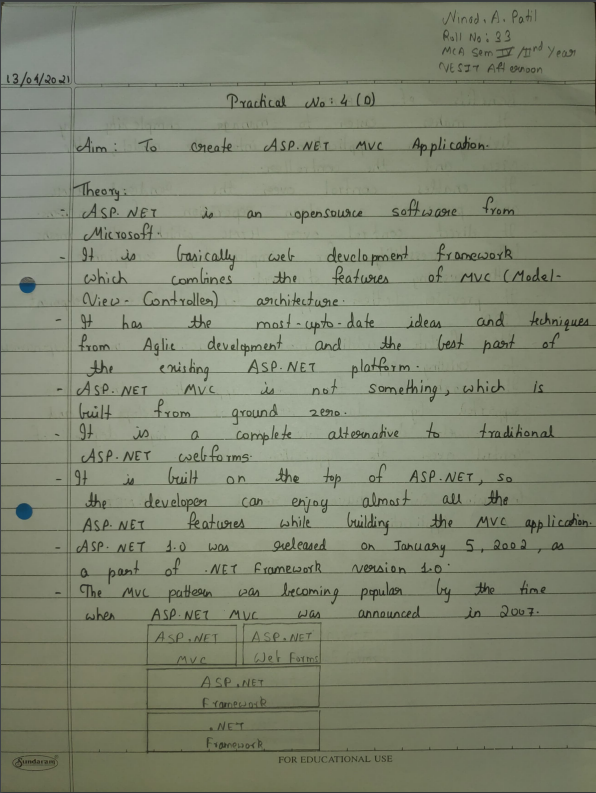 Ninad. A. Patil
Roll No: 33
MCA Sem IV / IInd Year
VESIT Afternoon
13/04/2021
Practical No: 4 (D)
Aim: To create ASP.NET MVC Application.
Theory:
- ASP.NET is an opensource software from
Microsoft.
- It is basically web development framework
which combines the features of MVC (Model-
View-Controller) architecture.
- It has the most-upto-date ideas and techniques
from Aglie development and the best part of
the existing ASP.NET platform.
- ASP.NET MVC is not something, which is
built from ground zero.
- It is a complete alternative to traditional
ASP.NET webforms.
- It is built on the top of ASP.NET, so
the developer can enjoy almost all the
ASP.NET features while building the MVC application.
- ASP.NET 1.0 was released on January 5, 2002, as
a part of .NET Framework version 1.0.
- The MVC pattern was becoming popular by the time
when ASP.NET MVC was announced in 2007.
ASP.NET ASP.NET
MVC Web Forms
ASP.NET
Framework
.NET
Framework
Sundaram FOR EDUCATIONAL USE